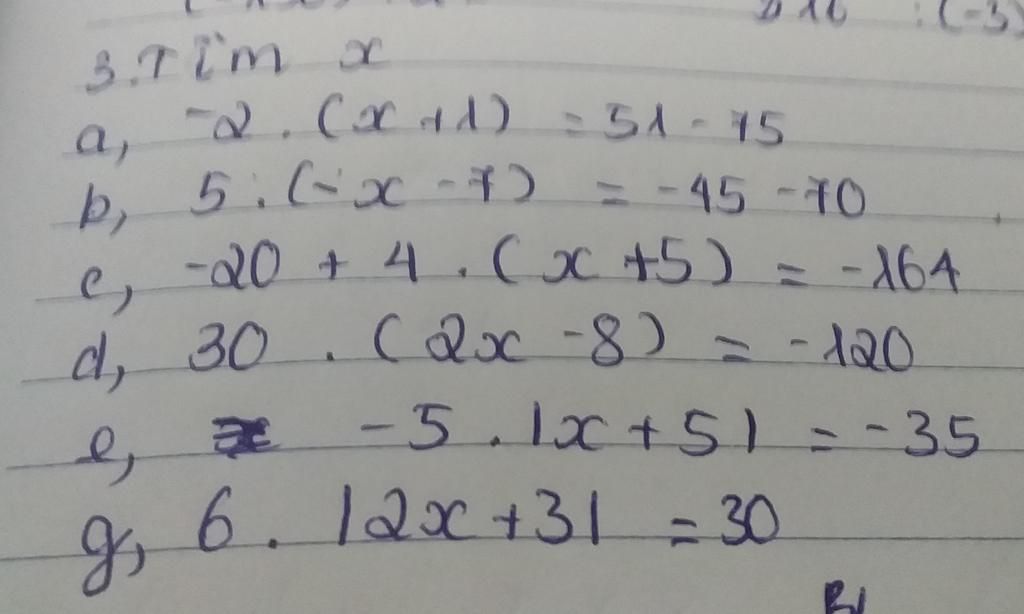 : (-3)
3. Tìm x
a, -2 . (x + 1) = 51 - 75
b, 5 . (-x - 7) = -45 - 70
c, -20 + 4 . (x + 5) = -164
d, 30 . (2x - 8) = -120
e, -5 . |x + 5| = -35
g, 6 . |2x + 3| = 30